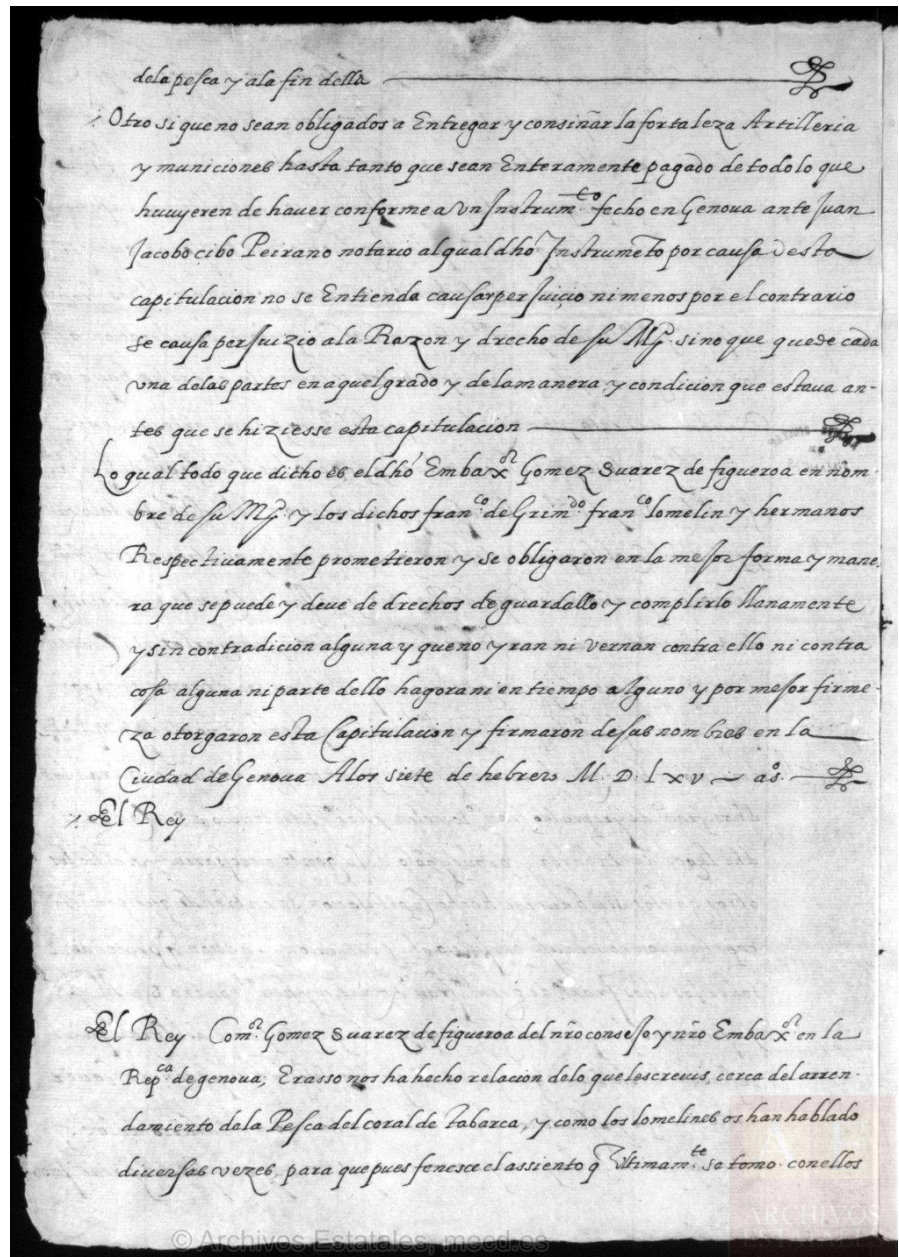 dela pesca y ala fin della
Otro si que no sean obligados a Entregar y consiñar la fortaleza Artilleria
y municiones hasta tanto que sean Enteramente pagado de todo lo que
huuyeren de hauer conforme a vn Instrum.to fecho en Genova ante Juan
Jacobo cibo Peirano notario al qual dhó Instrumeto por causa desta
capitulacion no se Entienda causar perjuiçio ni menos por el contrario
se causa perjuizio ala Razon y drecho de su Mg. sino que quede cada
vna delas partes en aquel grado y dela manera y condicion que estaua an-
tes que se hiziesse esta capitulacion
Lo qual todo que dicho es el dhó Embax.or Gomez Suarez de figueroa en nom-
bre de su Mg. y los dichos fran.co de Grim.do fran.co lomelin y hermanos
Respectiuamente prometieron y se obligaron en la mejor forma y mane-
ra que se puede y deue de drechos de guardallo y complirlo llanamente
y sin contradicion alguna y que no yran ni vernan contra ello ni contra
cosa alguna ni parte dello hagora ni en tiempo alguno y por mejor firme-
za otorgaron esta Capitulacion y firmaron de sus nombres en la
Ciudad de Genoua A los siete de hebrero M. D. lxv as.
El Rey
El Rey. Com.or Gomez Suarez de figueroa del nro consejo y nro Embax.or en la
Rep.ca de genoua, Erasso nos ha hecho relacion delo que les creuis, cerca del arren-
damiento dela Pesca del coral de Tabarca, y como los lomelines os han hablado
diuersas vezes, para que pues fenesce el assiento q Vltimam.te se tomo con ellos
© Archivos Estatales, mecd.es
ARCHIVOS
ESTATALES